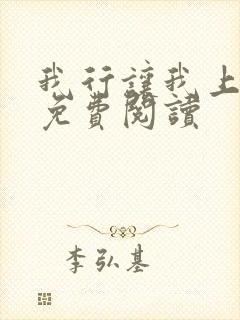 我行讓我上
免費閱讀
李弘基